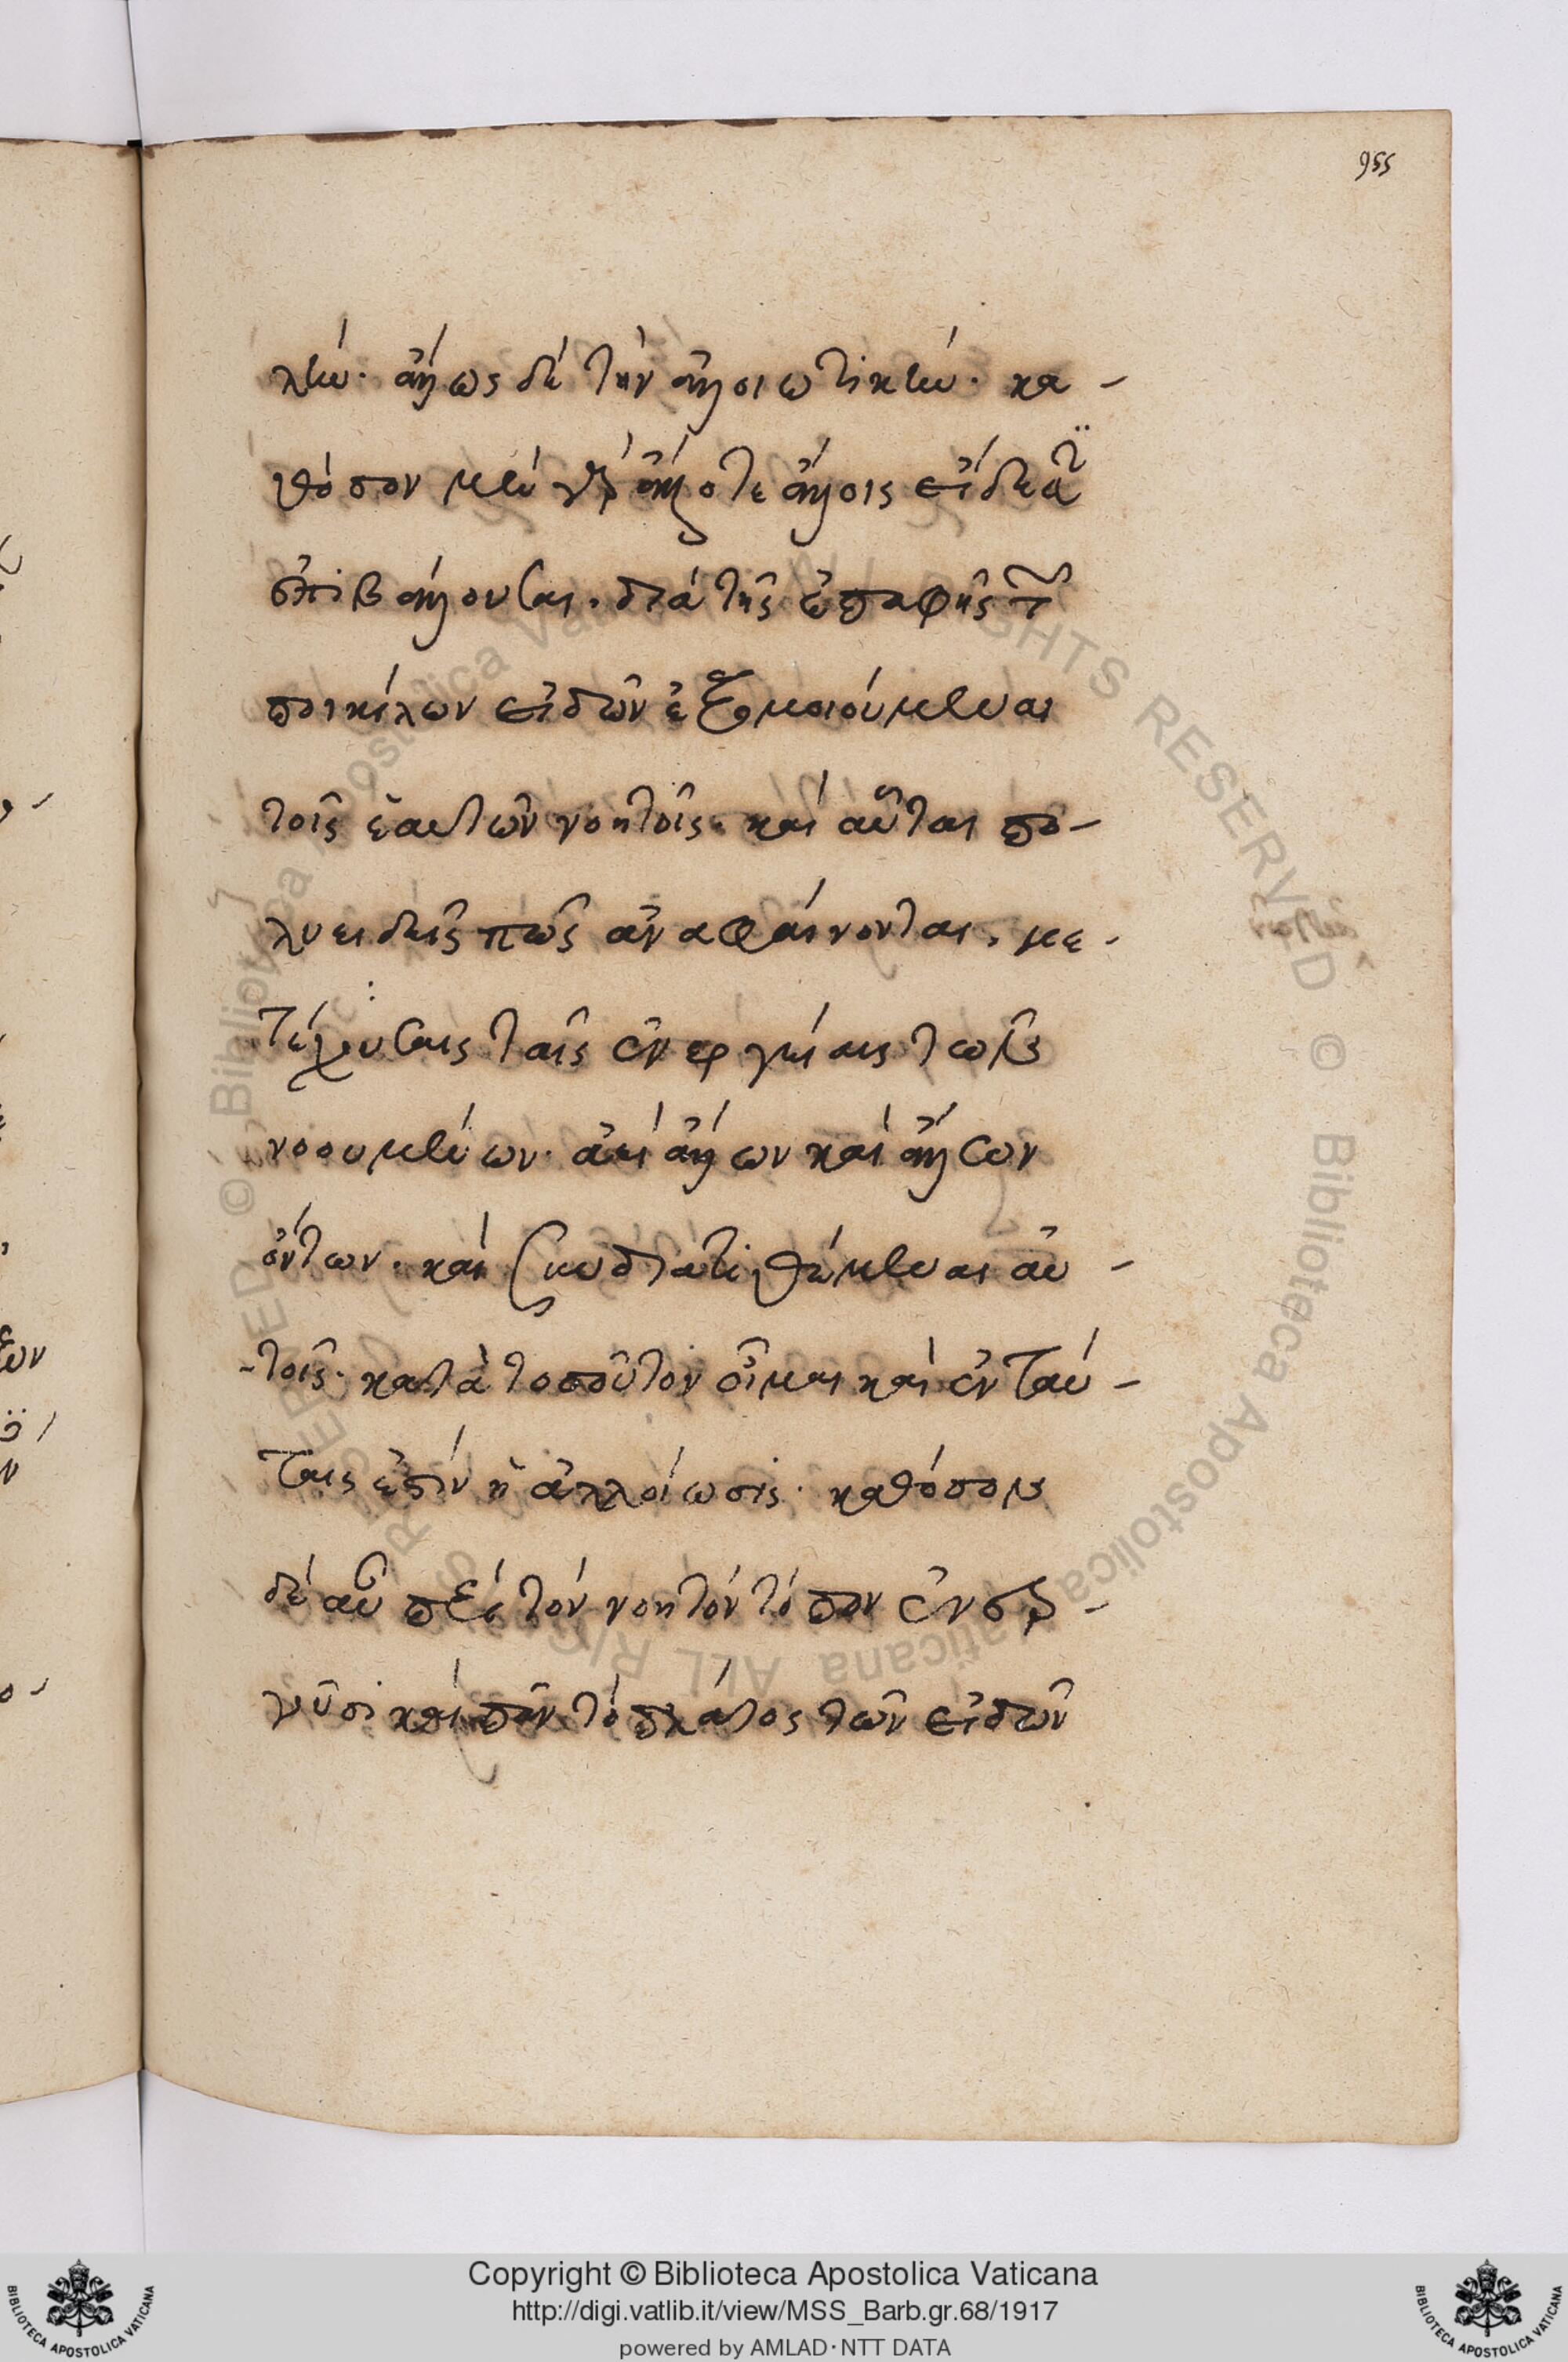 955
λήν. ἄλλως δὲ τὴν ἀλλοιωτικήν. κα-
θόσον μὲν γὰρ ἄλλοτε ἄλλοις εἴδεσι
ἐπιβάλλουσαι. διὰ τῆς ἐπαφῆς τῶν
ποικίλων εἰδῶν ἐξομοιούμεναι
τοῖς ἑαυτῶν νοητοῖς. καὶ αὗται πο-
λυειδεῖς πως ἀναφαίνονται. με-
τέχουσαις ταῖς ἐνεργείαις τῶν
νοουμένων. ἀεὶ ἄλλων καὶ ἄλλων
ὄντων. καὶ συνδιατιθέμεναι αὐ-
τοῖς. κατὰ τοσοῦτον οἶμαι καὶ ἐν ταύ-
ταις ἐστὶν ἡ ἀλλοίωσις. καθόσον
δὲ αὖ περὶ τὸν νοητὸν τόπον ἐνερ-
γοῦσι καὶ πᾶν τὸ πλάτος τῶν εἰδῶν
Copyright © Biblioteca Apostolica Vaticana
http://digi.vatlib.it/view/MSS_Barb.gr.68/1917
powered by AMLAD·NTT DATA